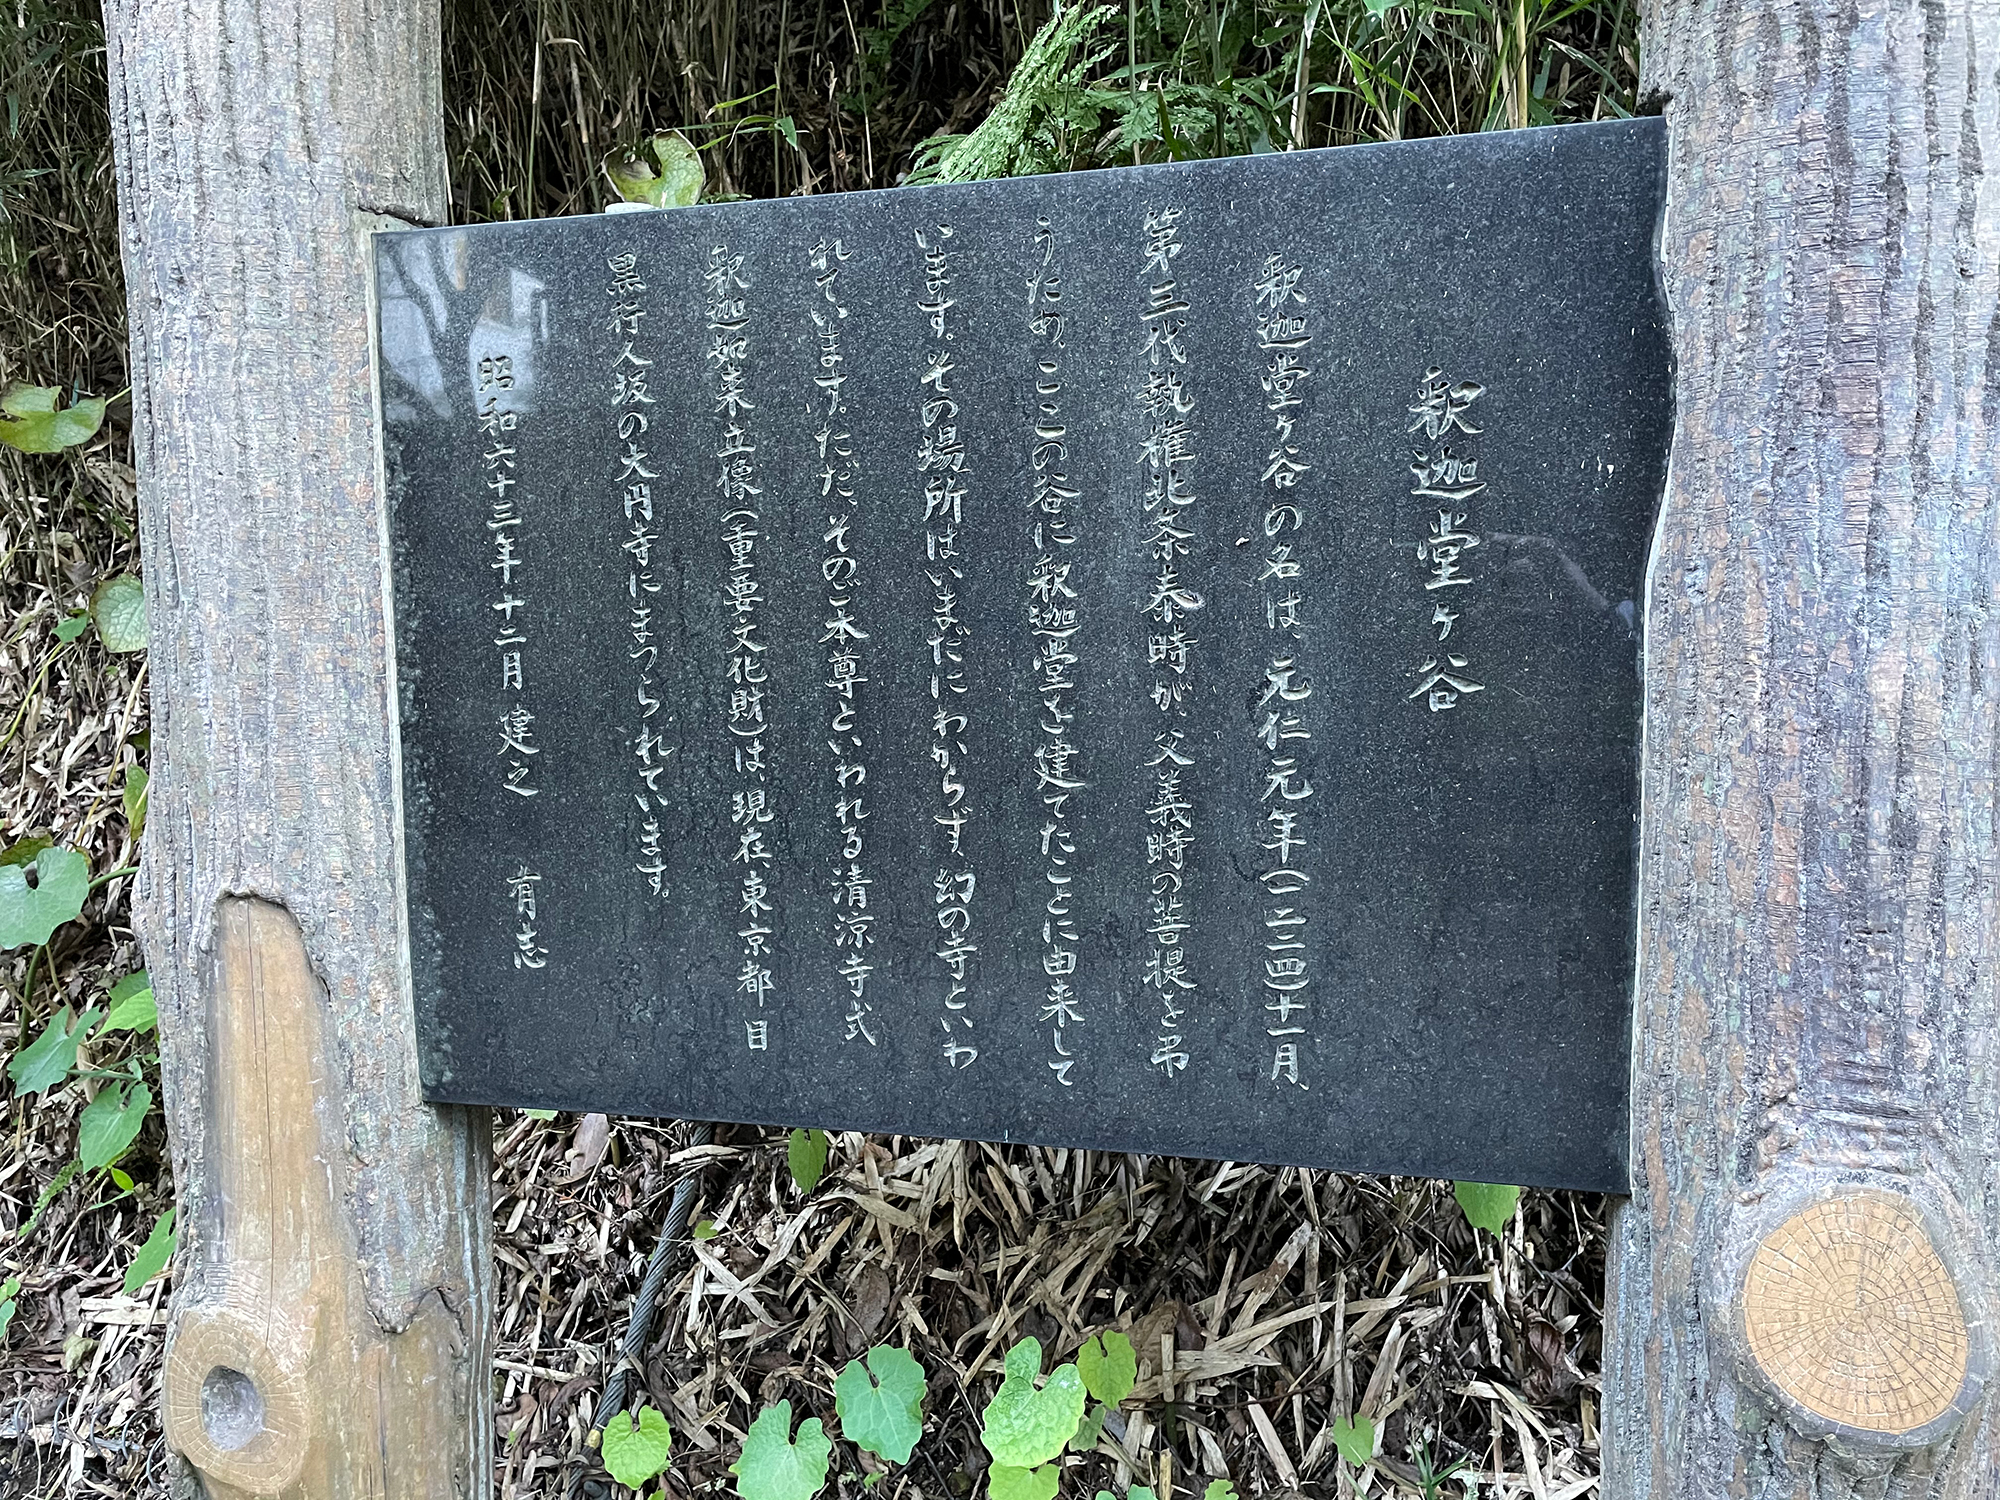 釈迦堂ヶ谷
釈迦堂ヶ谷の名は、元仁元年(一二二四)十一月、
第三代執権北条泰時が、父義時の菩提を弔
うため、ここの谷に釈迦堂を建てたことに由来して
います。その場所はいまだにわからず、幻の寺といわ
れています。ただ、そのご本尊といわれる清涼寺式
釈迦如来立像(重要文化財)は、現在、東京都目
黒行人坂の大円寺にまつられています。
昭和六十三年十二月 建之 有志